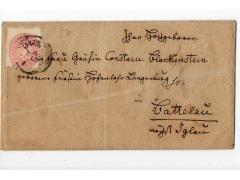 Ihro Hochgeboren
Die Frau Gräfin Constanze Blankenstein
geborene Fürstin Hohenlohe Langenburg
in
Battelau
nächst Iglau